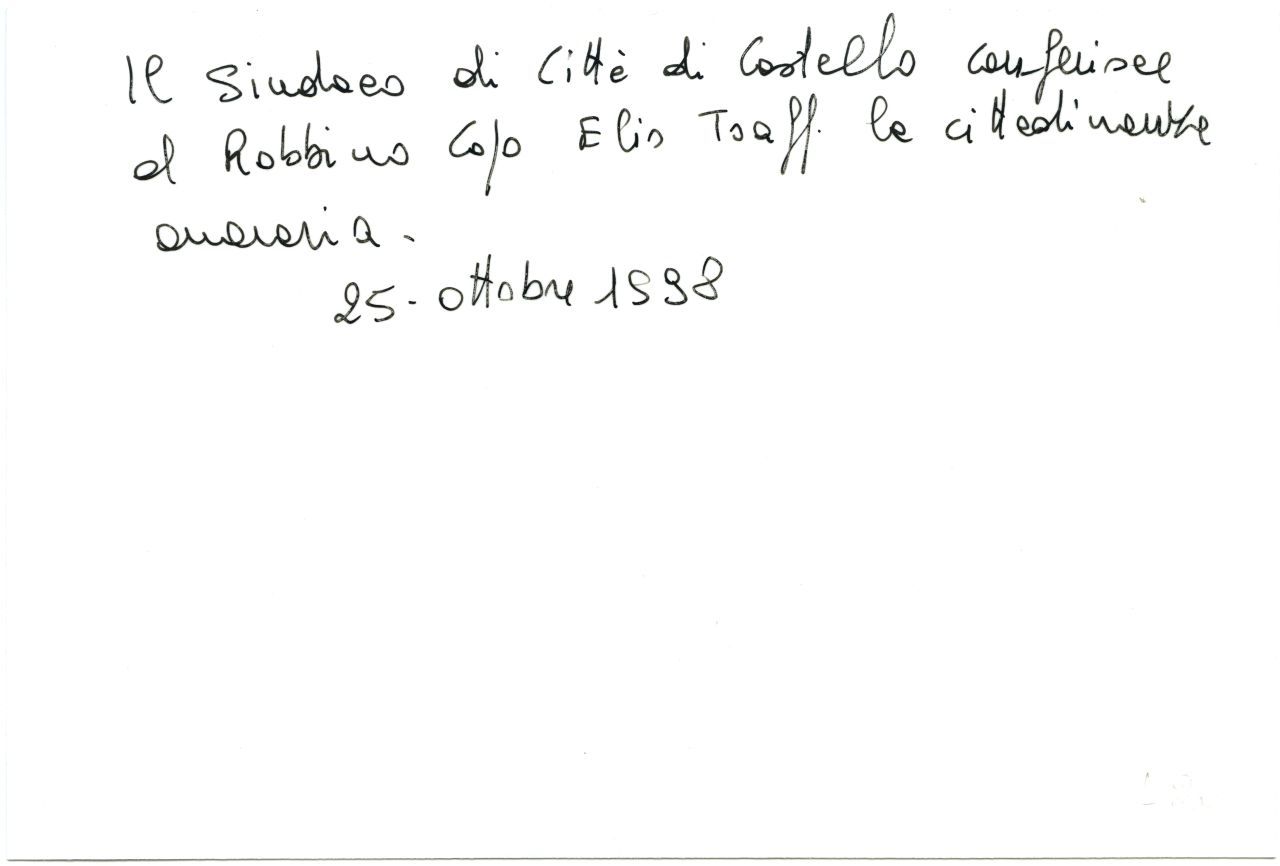 Il Sindaco di Città di Castello conferisce
al Rabbino Capo Elio Toaff. la cittadinanza
onoraria.
25. ottobre 1998